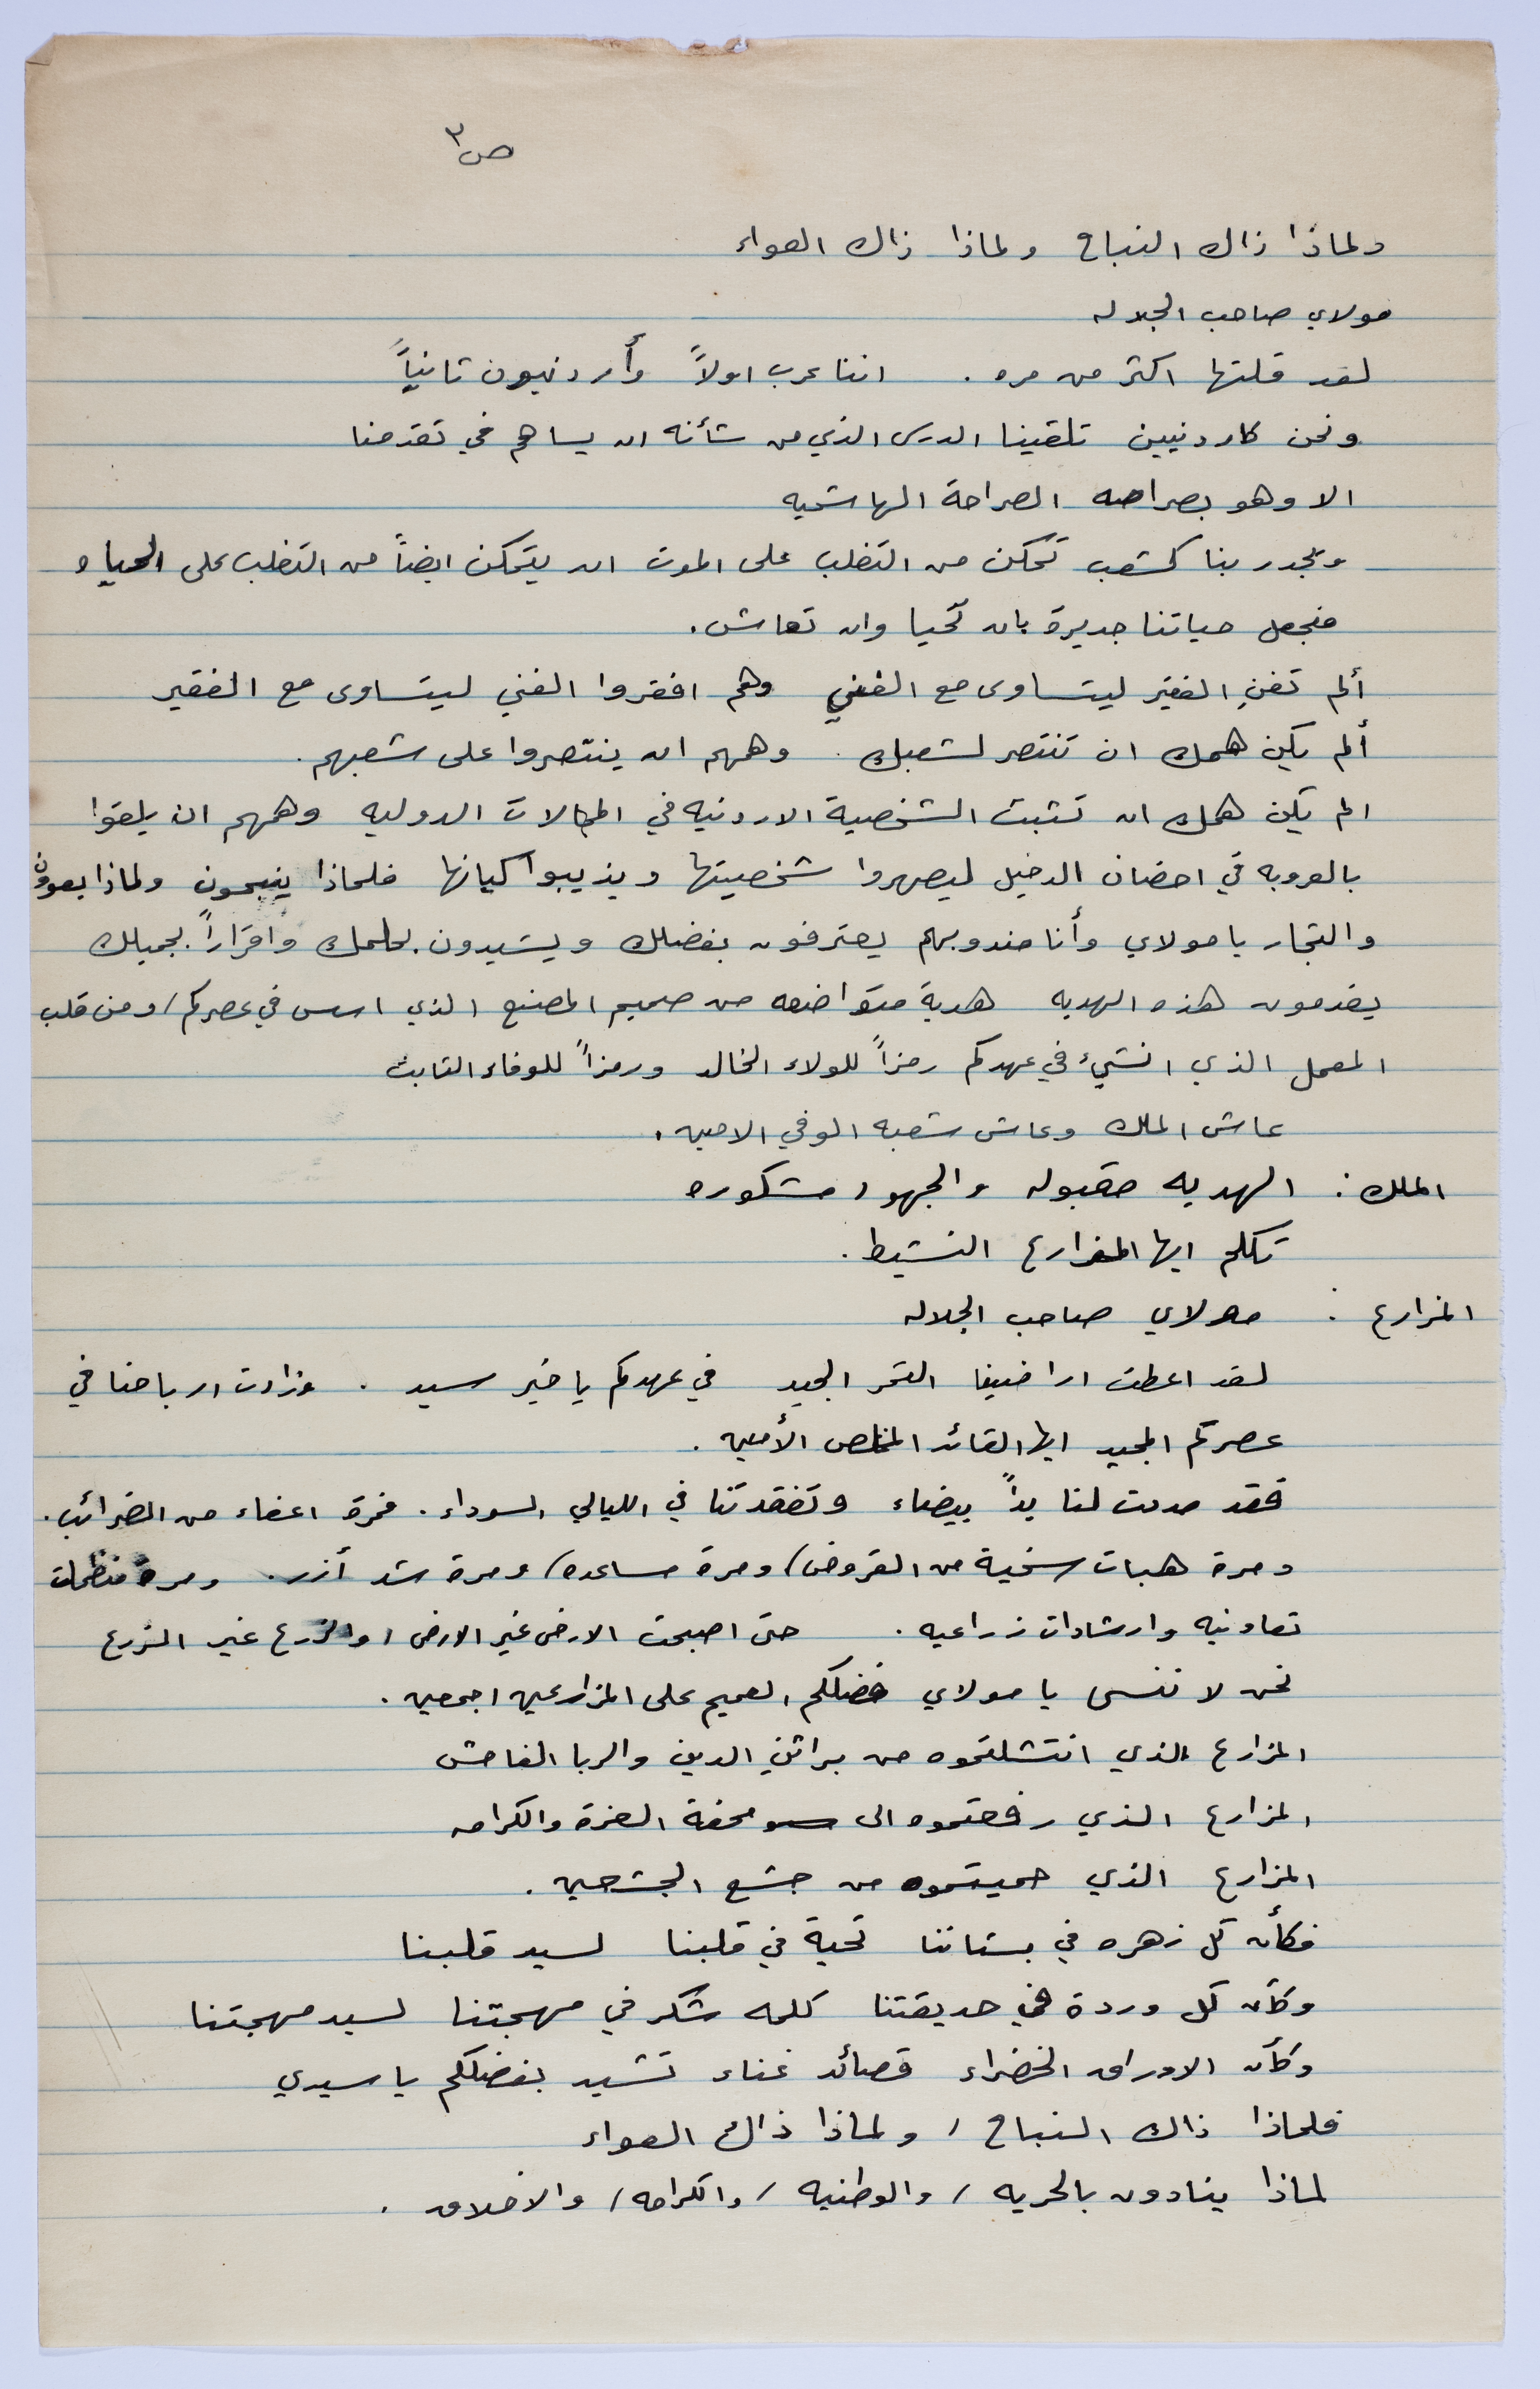 ص٣
ولماذا ذاك النباح ولماذا ذاك العواء
مولاي صاحب الجلاله
لقد قلتها اكثر من مره . اننا عرب اولاً وأردنيون ثانياً
ونحن كاردنيين تلقينا الدرس الذي من شأنه ان يساهم في تقدمنا
الا وهو بصراحه الصراحة الهاشميه
ويجدر بنا كشعب تمكن من التغلب على الموت ان يتمكن ايضاً من التغلب على الحياه
فنجعل حياتنا جديرة بان تُحيا وان تعاش .
ألم تغنِ الفقير ليتساوى مع الغني وهم افقروا الغني ليتساوى مع الفقير
ألم يكن همك ان تنتصر لشعبك . وهمهم ان ينتصروا على شعبهم .
الم يكن همك ان تثبت الشخصية الاردنيه في المجالات الدوليه وهمهم ان يلقوا
بالعروبه في احضان الدخيل ليصهروا شخصيتها ويذيبوا كيانها فلماذا ينبحون ولماذا يعوون
والتجار يا مولاي وأنا مندوبهم يعترفون بفضلك ويشيدون بحلمك واقراراً بجميلك
يقدمون هذه الهديه هدية متواضعه من صميم المصنع الذي اسس في عصركم / ومن قلب
المعمل الذي انشيء في عهدكم رمزاً للولاء الخالد ورمزاً للوفاء الثابت
عاش الملك وعاش شعبه الوفي الامين .
الملك : الهديه مقبوله والجهود مشكوره
تكلم ايها المزارع النشيط .
المزارع : مولاي صاحب الجلاله
لقد اعطت اراضينا الثمر الجيد في عهدكم يا خير سيد . وزادت ارباحنا في
عصركم المجيد ايها القائد المخلص الأمين .
فقد مددت لنا يداً بيضاء وتفقدتنا في الليالي السوداء . فمرة اعفاء من الضرائب .
ومرة هبات سخية من القروض / ومرة مساعده / ومرة شد أزر . ومرة منظمات
تعاونيه وارشادات زراعيه . حتى اصبحت الارض غير الارض / والزرع غير الزرع
نحن لا ننسى يا مولاي فضلكم العميم على المزارعين اجمعين .
المزارع الذي انتشلتموه من براثن الدين والربا الفاحش
المزارع الذي رفعتموه الى محفة العزة والكرامه
المزارع الذي حميتموه من جشع الجشعين .
فكأن كل زهره في بستاننا تحية في قلبنا لسيد قلبنا
وكأن كل وردة في حديقتنا كلمه شكر في مهجتنا لسيد مهجتنا
وكأن الاوراق الخضراء قصائد غناء تشيد بفضلكم يا سيدي
فلماذا ذاك النباح / ولماذا ذاك العواء
لماذا ينادون بالحريه / والوطنيه / والكرامه / والاخلاق .